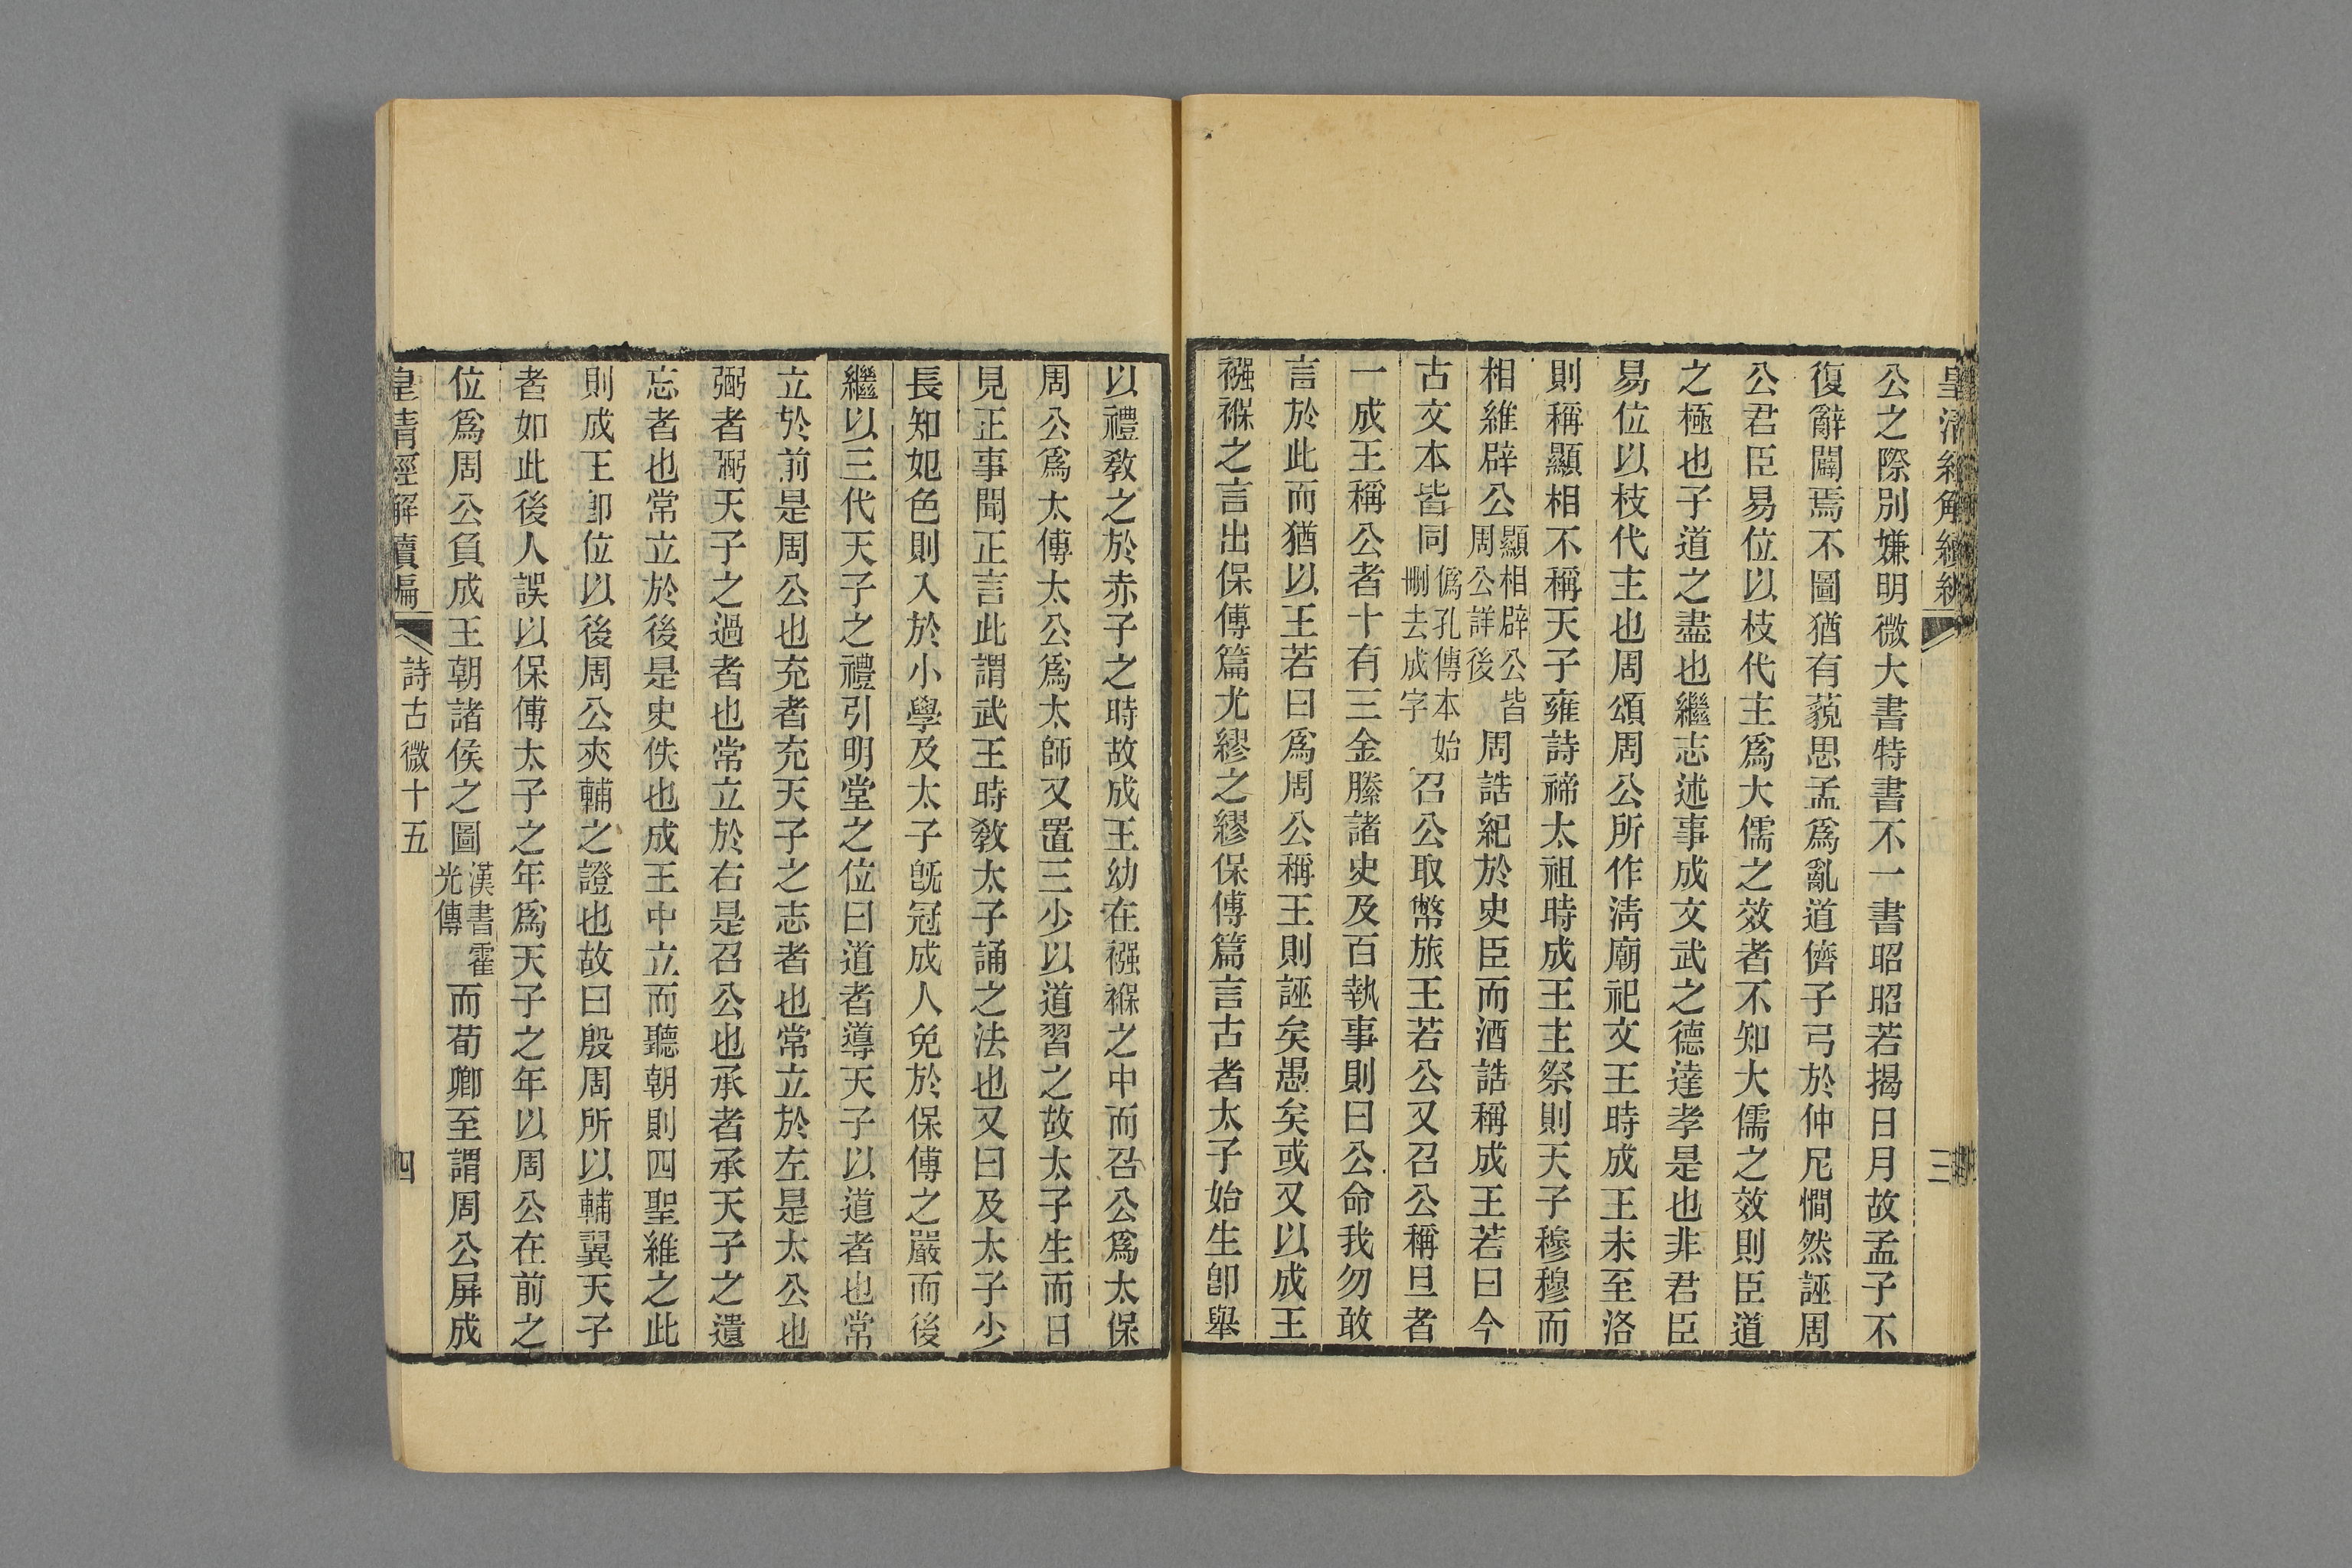 皇清經解續編 三
公之際別嫌明微大書特書不一書昭昭若揭日月故孟子不
復辭闢焉不圖猶有藐思孟爲亂道儕子弓於仲尼憪然誣周
公君臣易位以枝代主爲大儒之效者不知大儒之效則臣道
之極也子道之盡也繼志述事成文武之德達孝是也非君臣
易位以枝代主也周頌周公所作淸廟祀文王時成王未至洛
則稱顯相不稱天子雍詩禘太祖時成王主祭則天子穆穆而
相維辟公顯相辟公皆周公詳後周誥紀於史臣而酒誥稱成王若曰今
古文本皆同僞孔傳本始刪去成字召公取幣旅王若公又召公稱旦者
一成王稱公者十有三金縢諸史及百執事則曰公命我勿敢
言於此而猶以王若曰爲周公稱王則誣矣愚矣或又以成王
襁褓之言出保傅篇尤繆之繆保傅篇言古者太子始生卽舉
以禮敎之於赤子之時故成王幼在襁褓之中而召公爲太保
周公爲太傅太公爲太師又置三少以道習之故太子生而日
見正事聞正言此謂武王時敎太子誦之法也又曰及太子少
長知妃色則入於小學及太子旣冠成人免於保傅之嚴而後
繼以三代天子之禮引明堂之位曰道者導天子以道者也常
立於前是周公也充者充天子之志者也常立於左是太公也
弼者弼天子之過者也常立於右是召公也承者承天子之遺
忘者也常立於後是史佚也成王中立而聽朝則四聖維之此
則成王卽位以後周公夾輔之證也故曰殷周所以輔翼天子
者如此後人誤以保傅太子之年爲天子之年以周公在前之
位爲周公負成王朝諸侯之圖漢書霍光傳而荀卿至謂周公屏成
皇清經解續編 詩古微十五 四